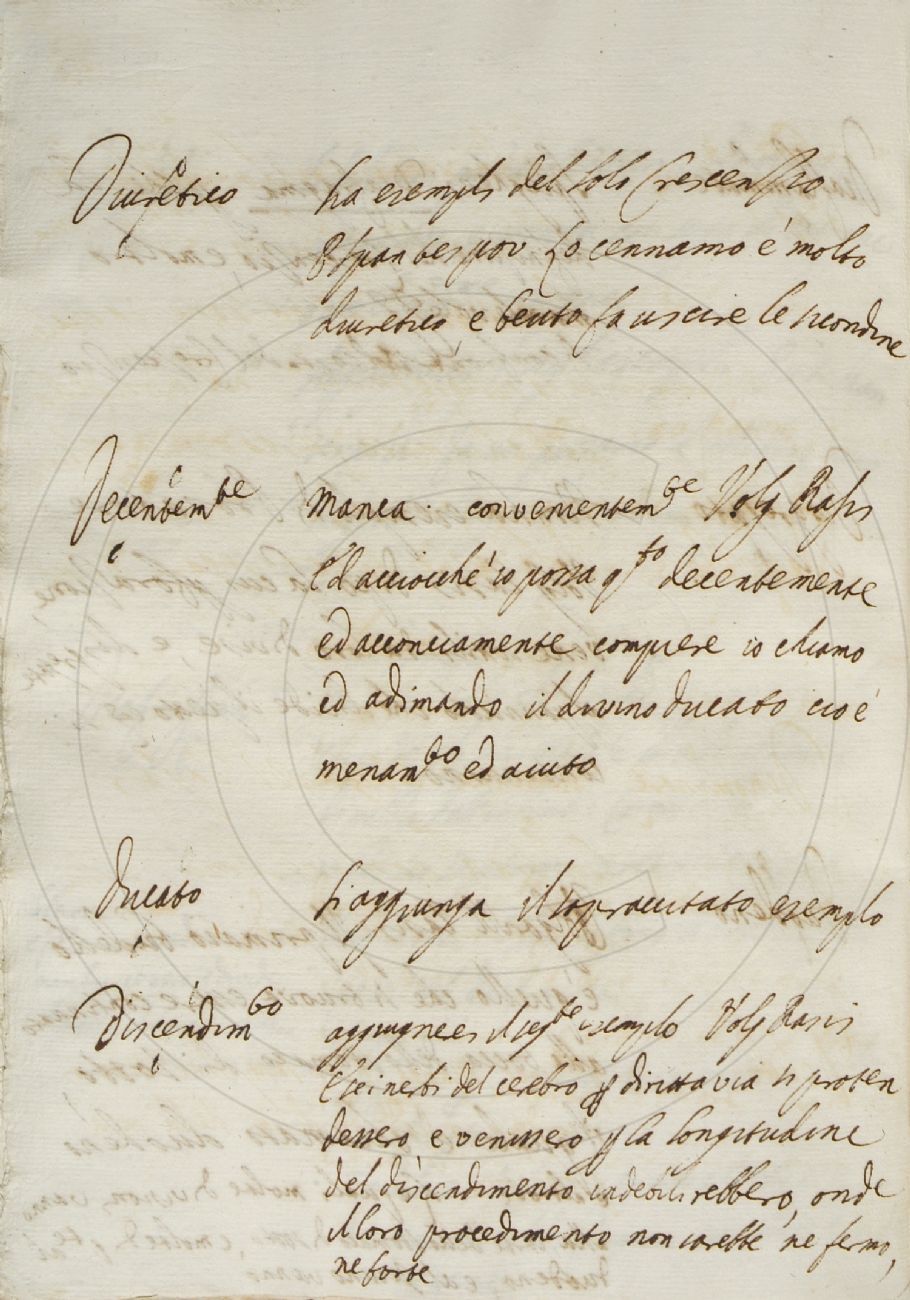 Diuretico ha esempli del solo Crescenzio
Lo cennamo é molto
diuretico, e beuto fa uscire le secondine
Decentem.te Manca. convenientem.te Volg Rasis
E d'acciocché io possa q.sto decentemente
ed acconciamente compiere io chiamo
ed adimando il divino ducato cioé
menam.to ed aiuto
Ducato si aggiunga il sopraccitato esempio
Discendim.to aggiugnesi il seg.te esemplo Volg Rasis
E se i nerbi del cerebro p diritta via si proten
dessero e venissero p la longitudine
del discendimento indebilirebbero, onde
il loro procedimento non sarebbe ne fermo,
ne forte